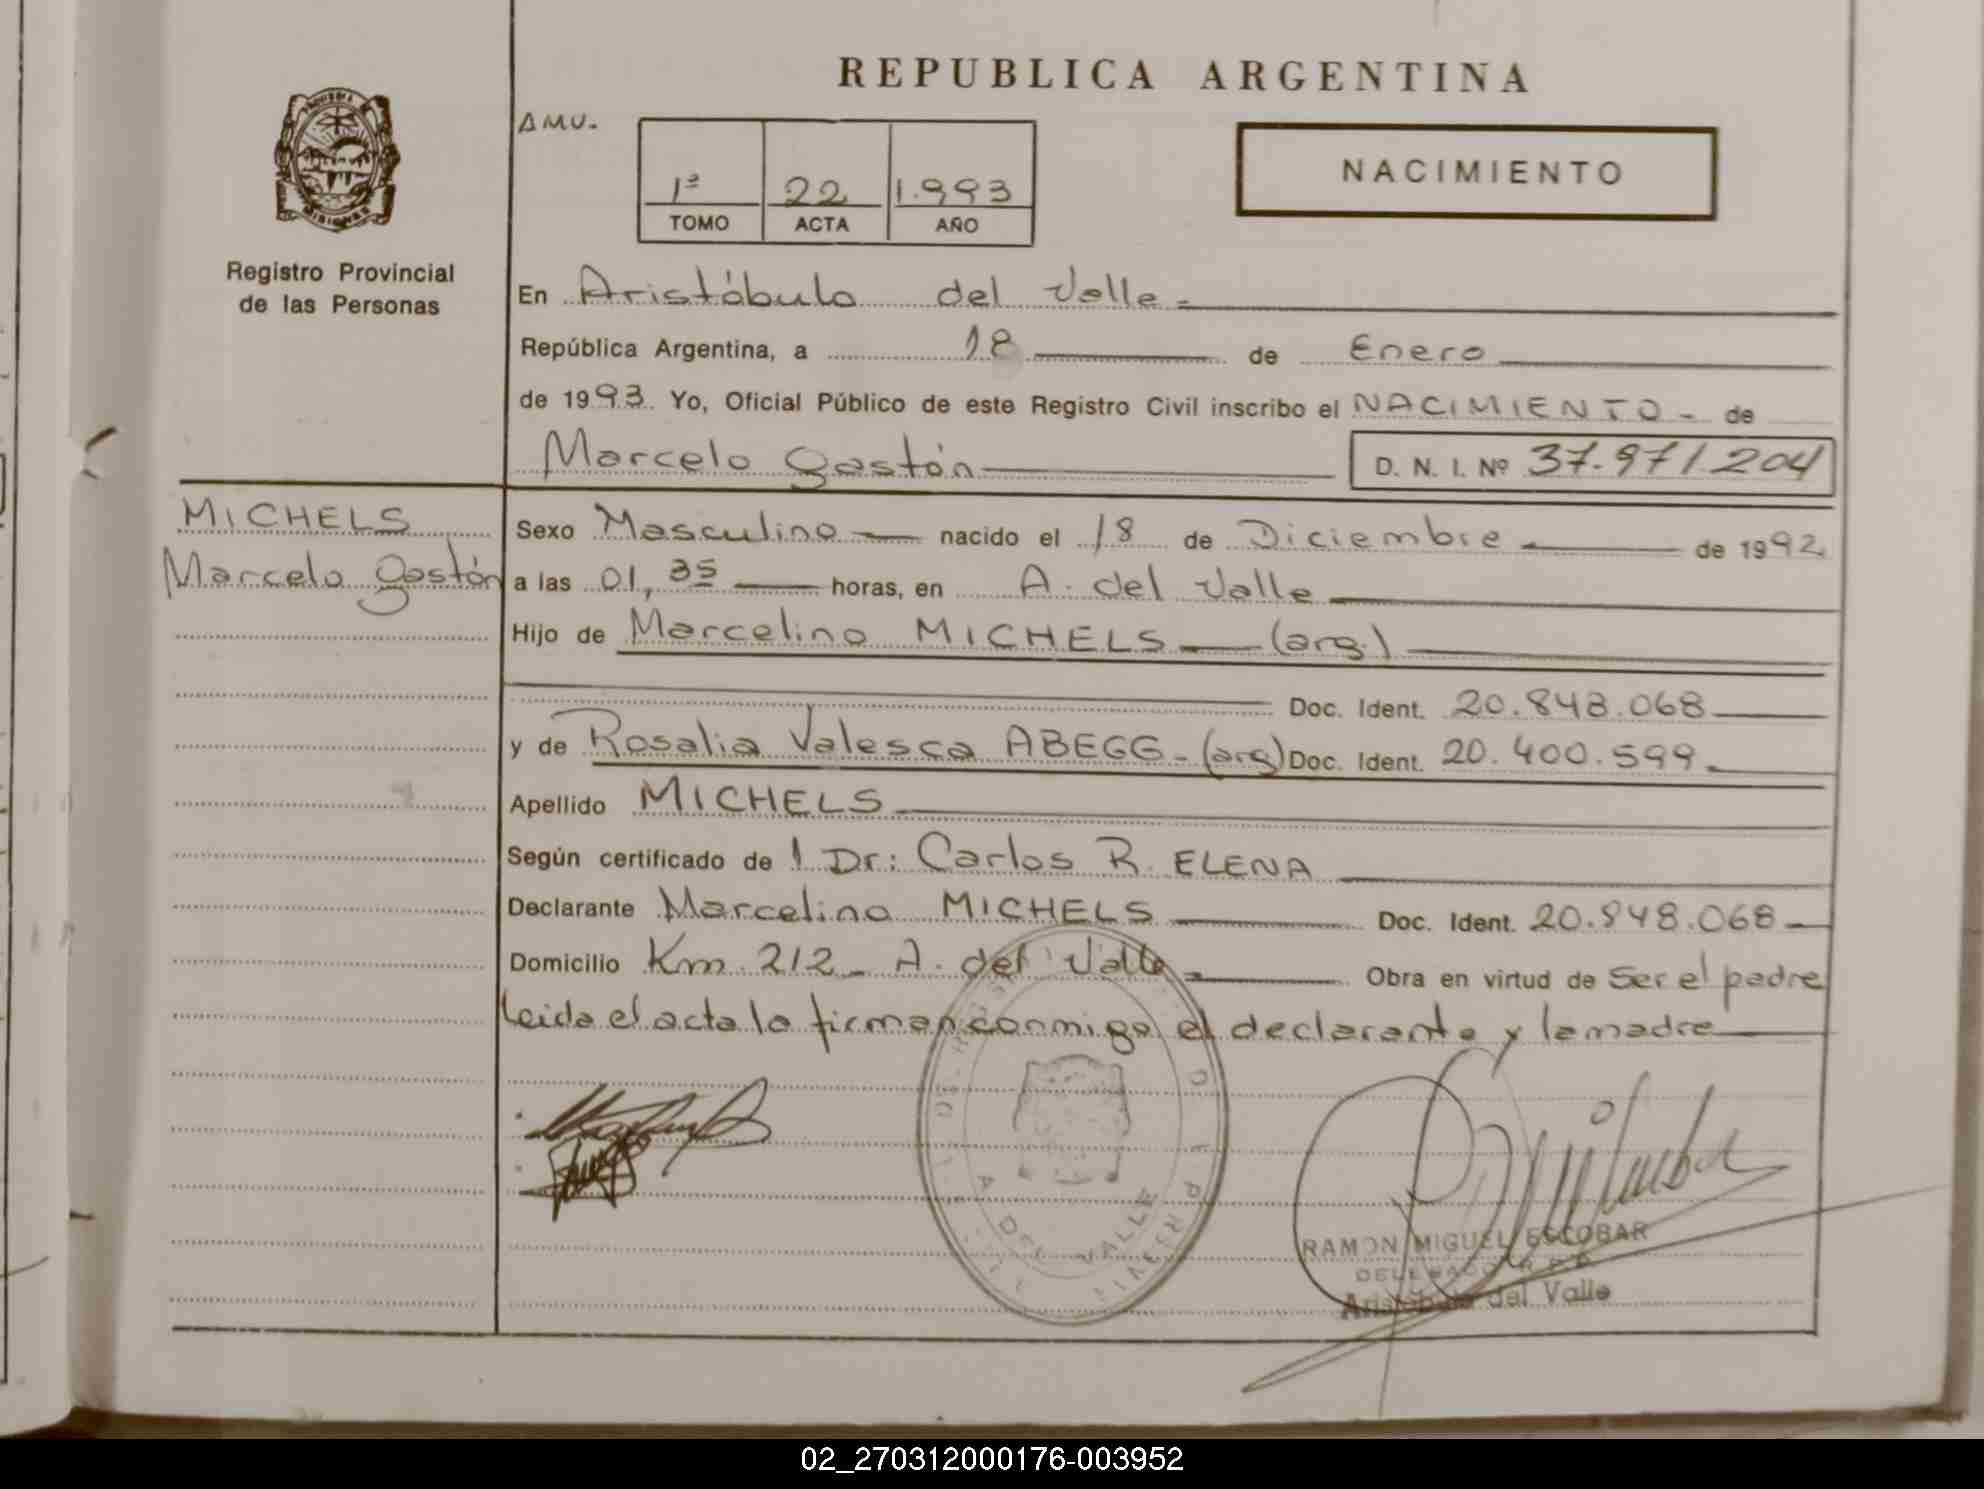 REPUBLICA ARGENTINA
AMU.
1ª 22 1.993
TOMO ACTA AÑO
NACIMIENTO
MISIONES
Registro Provincial
de las Personas
En Aristóbulo del Valle
República Argentina, a 18 de Enero
de 1993. Yo, Oficial Público de este Registro Civil inscribo el NACIMIENTO - de
Marcelo Gastón D. N. I. Nº 37.971.204
MICHELS
Marcelo Gastón
Sexo Masculino nacido el 18 de Diciembre de 1992
a las 01,35 horas, en A. del Valle
Hijo de Marcelino MICHELS (arg.)
Doc. Ident. 20.848.068
y de Rosalia Valesca ABEGG - (arg) Doc. Ident. 20.400.599
Apellido MICHELS
Según certificado de l Dr: Carlos R. ELENA
Declarante Marcelino MICHELS Doc. Ident. 20.848.068
Domicilio Km 212 - A. del Valle Obra en virtud de Ser el padre
leida el acta la firman conmigo el declarante y la madre
A. DEL VALLE
RAMON MIGUEL ESCOBAR
DELEGADO R P P
Aristóbulo del Valle
02_270312000176-003952